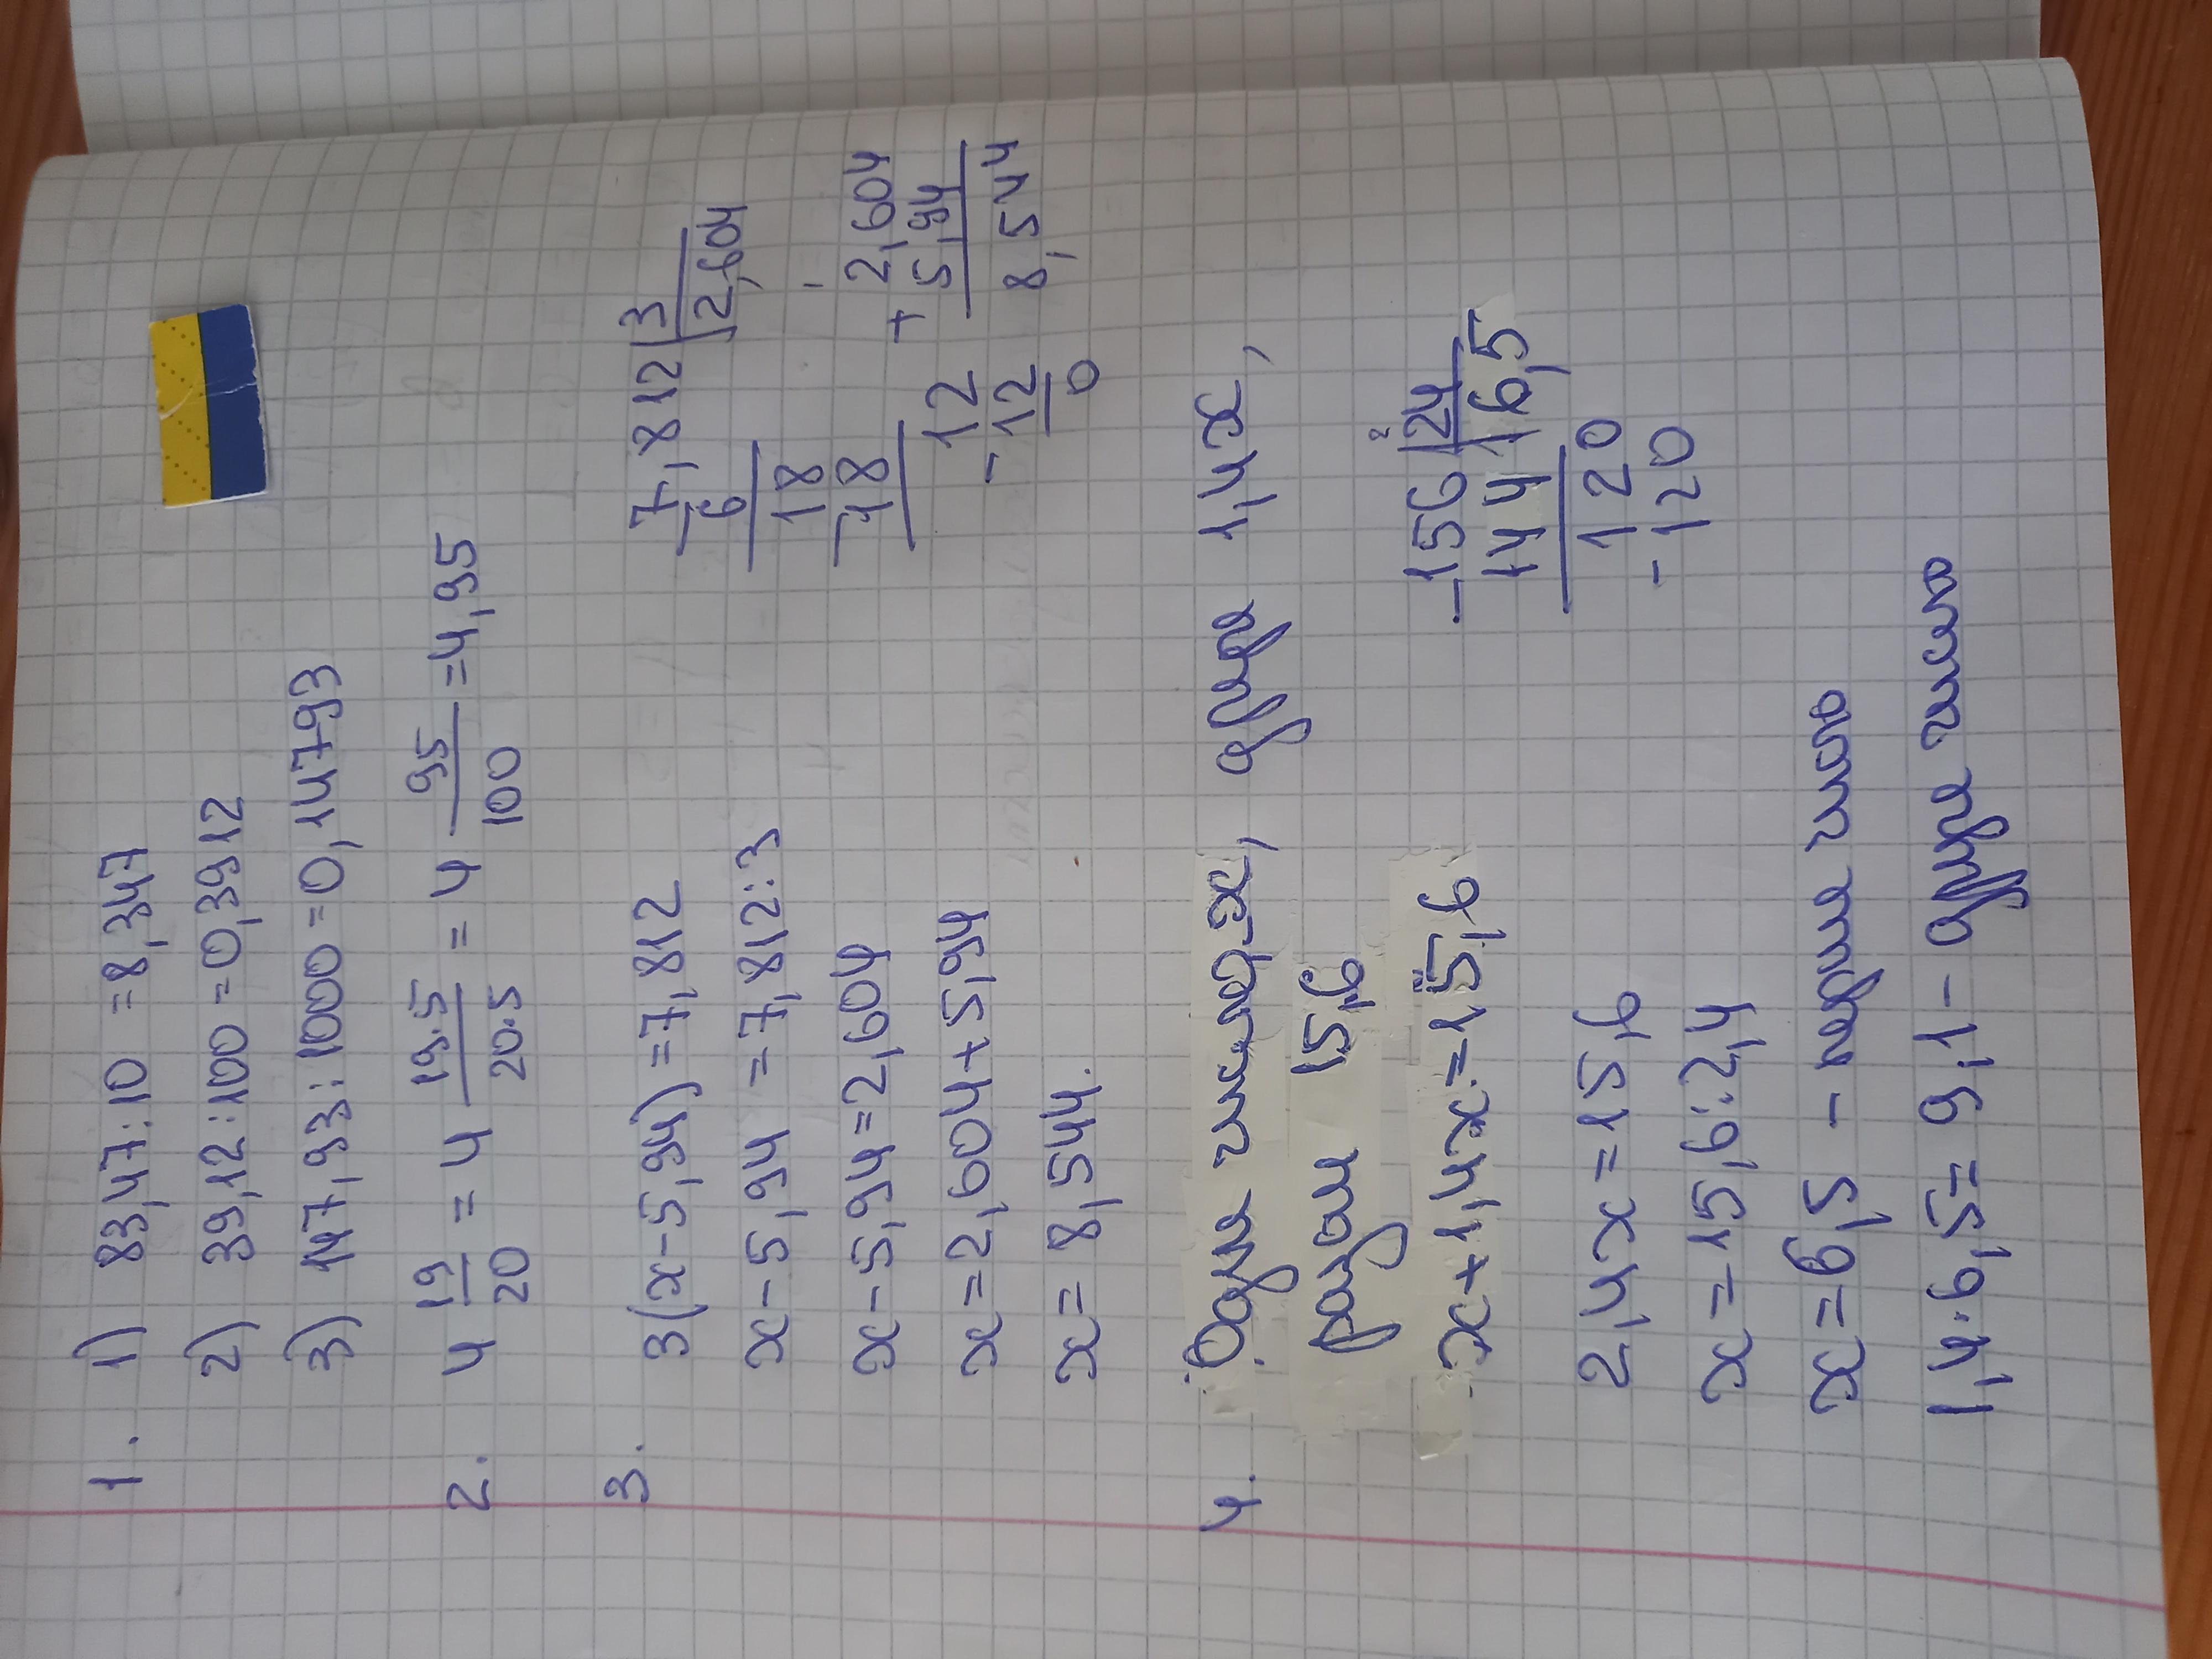 1. 1) 83,47:10 = 8,347
2) 39,12:100 = 0,3912
3) 147,93:1000 = 0,14793
2. 4 19/20 = 4 19·5/20·5 = 4 95/100 = 4,95
3. 3(x-5,94) = 7,812
x-5,94 = 7,812:3
x-5,94 = 2,604
x = 2,604+5,94
x = 8,544.
7,812 | 3
6 | 2,604
18
-18
12
-12
0
2,604
+ 5,94
8,544
4. Одне число-x, друге 1,4x,
разом 15,6
x+1,4x = 15,6
2,4x = 15,6
x = 15,6:2,4
x = 6,5 - перше число
1,4·6,5 = 9,1 - друге число
-156 | 24
144 | 6,5
120
-120